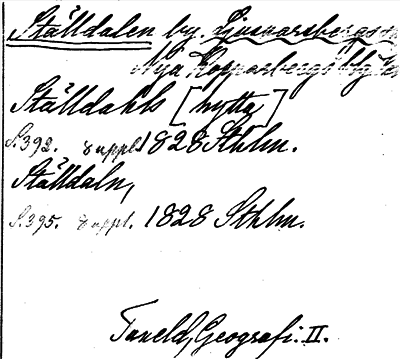 Ställdalen by. Ljusnarsbergs
Nya Kopparbergs
Ställdahls [hytta]
S. 392. suppl. 1828 Sthlm.
Ställdaln,
S. 395. suppl. 1828 Sthlm.
Tuneld, Geografi. II.